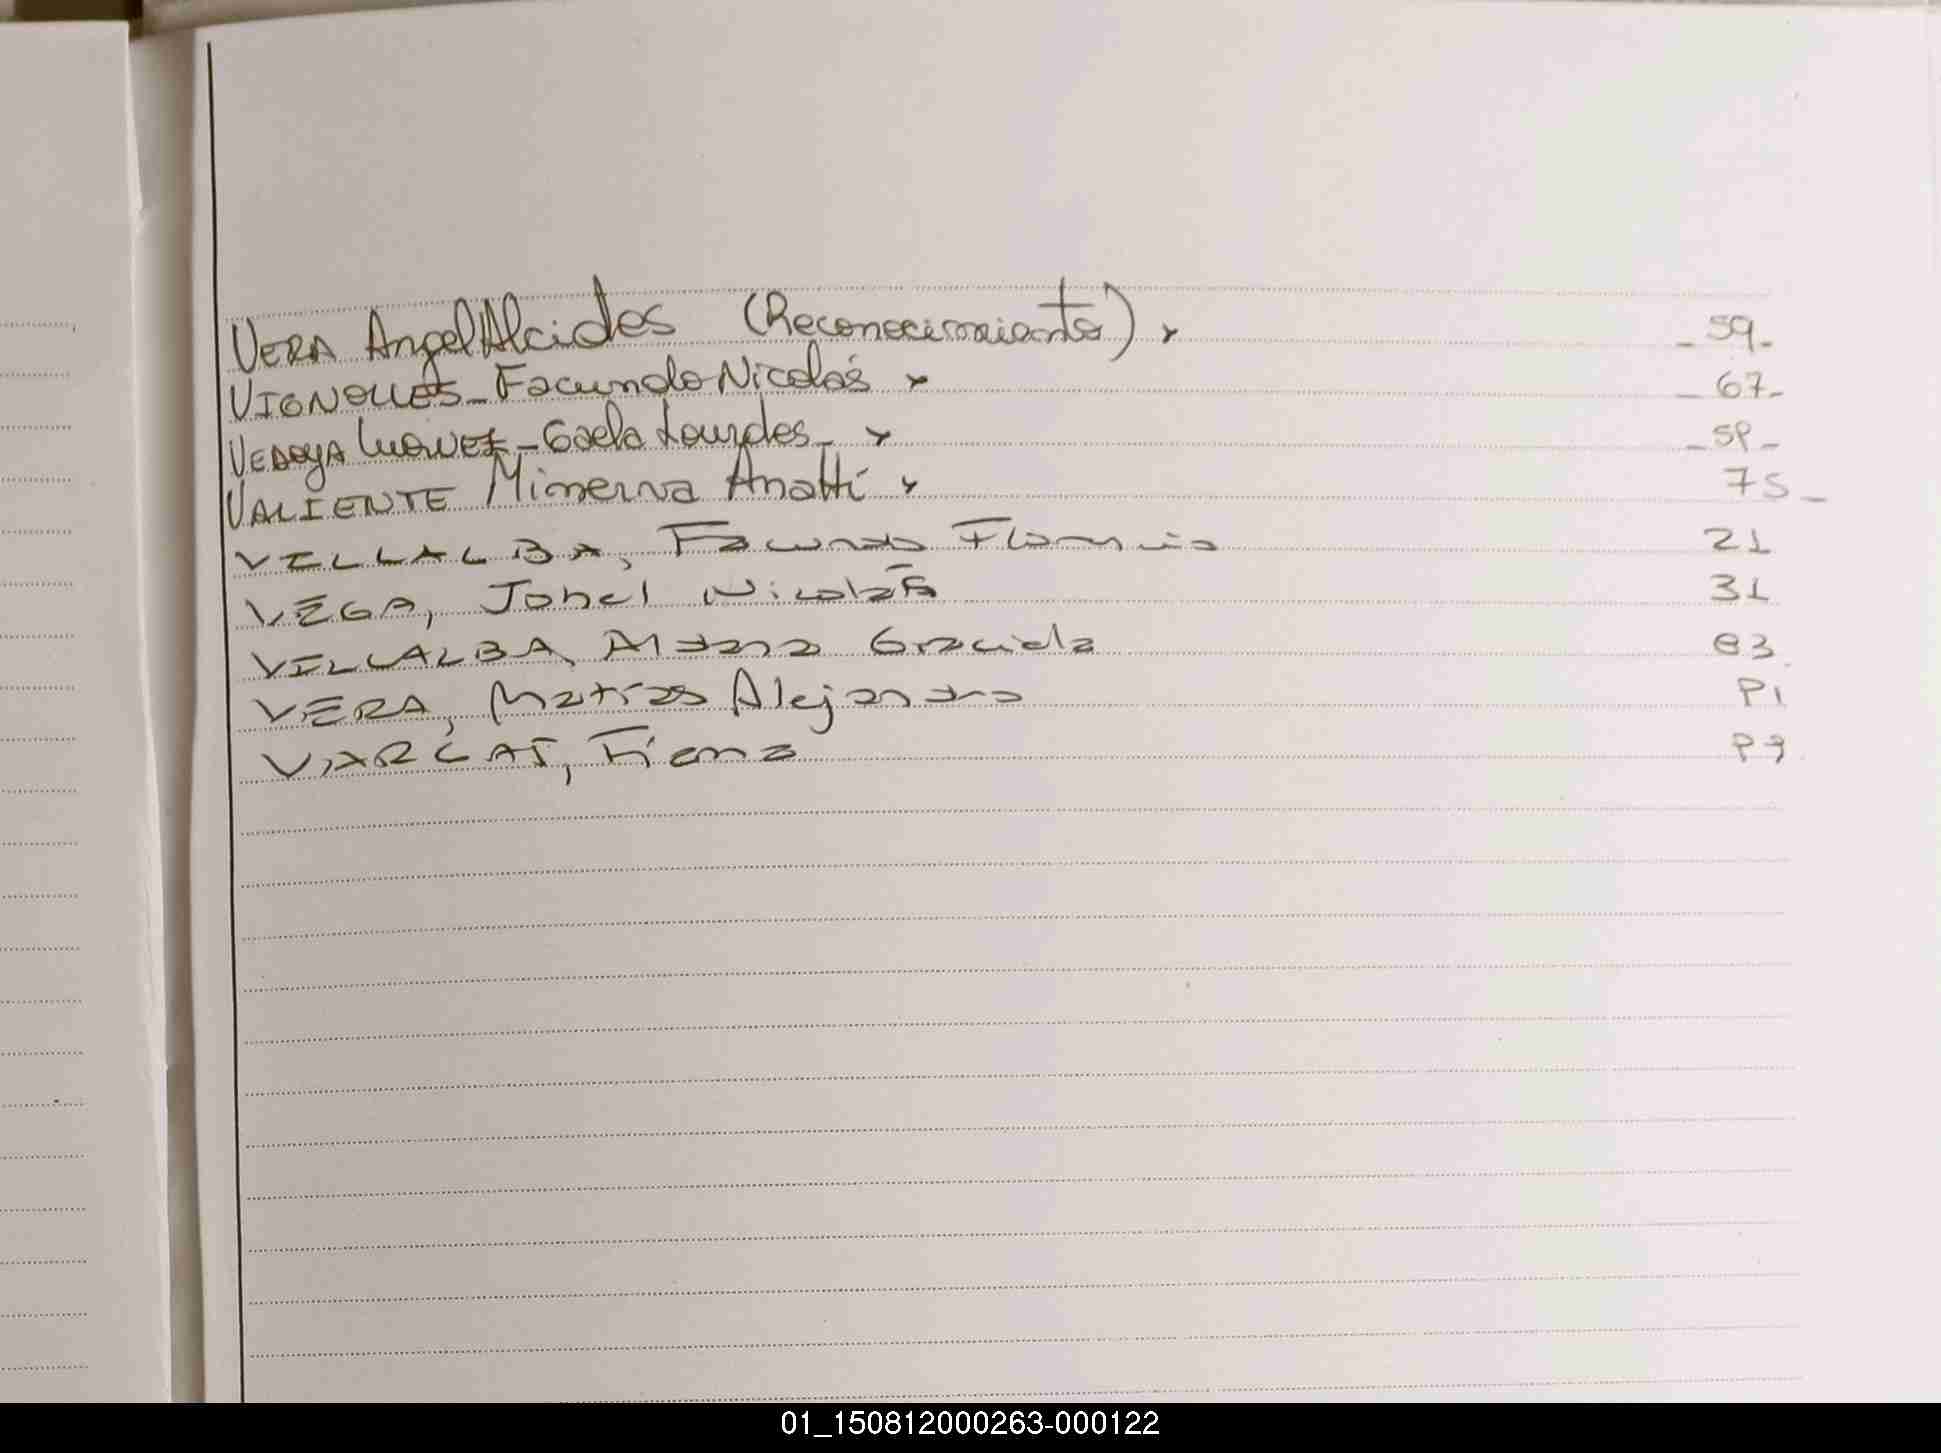 VERA Angel Alcides (Reconocimiento) x _ 59 _
VIGNOLLES _ Facundo Nicolás x _ 67 _
VEDOYA _ Gaela Lourdes _ x _ 58 _
VALIENTE Minerva Anatti x 75 _
VILLALBA, Facundo Flaminio 21
VEGA, Johel Nicolás 31
VILLALBA, Aitana Graciela 83
VERA, Matías Alejandro 81
VARGAS, Fiama
01_150812000263-000122